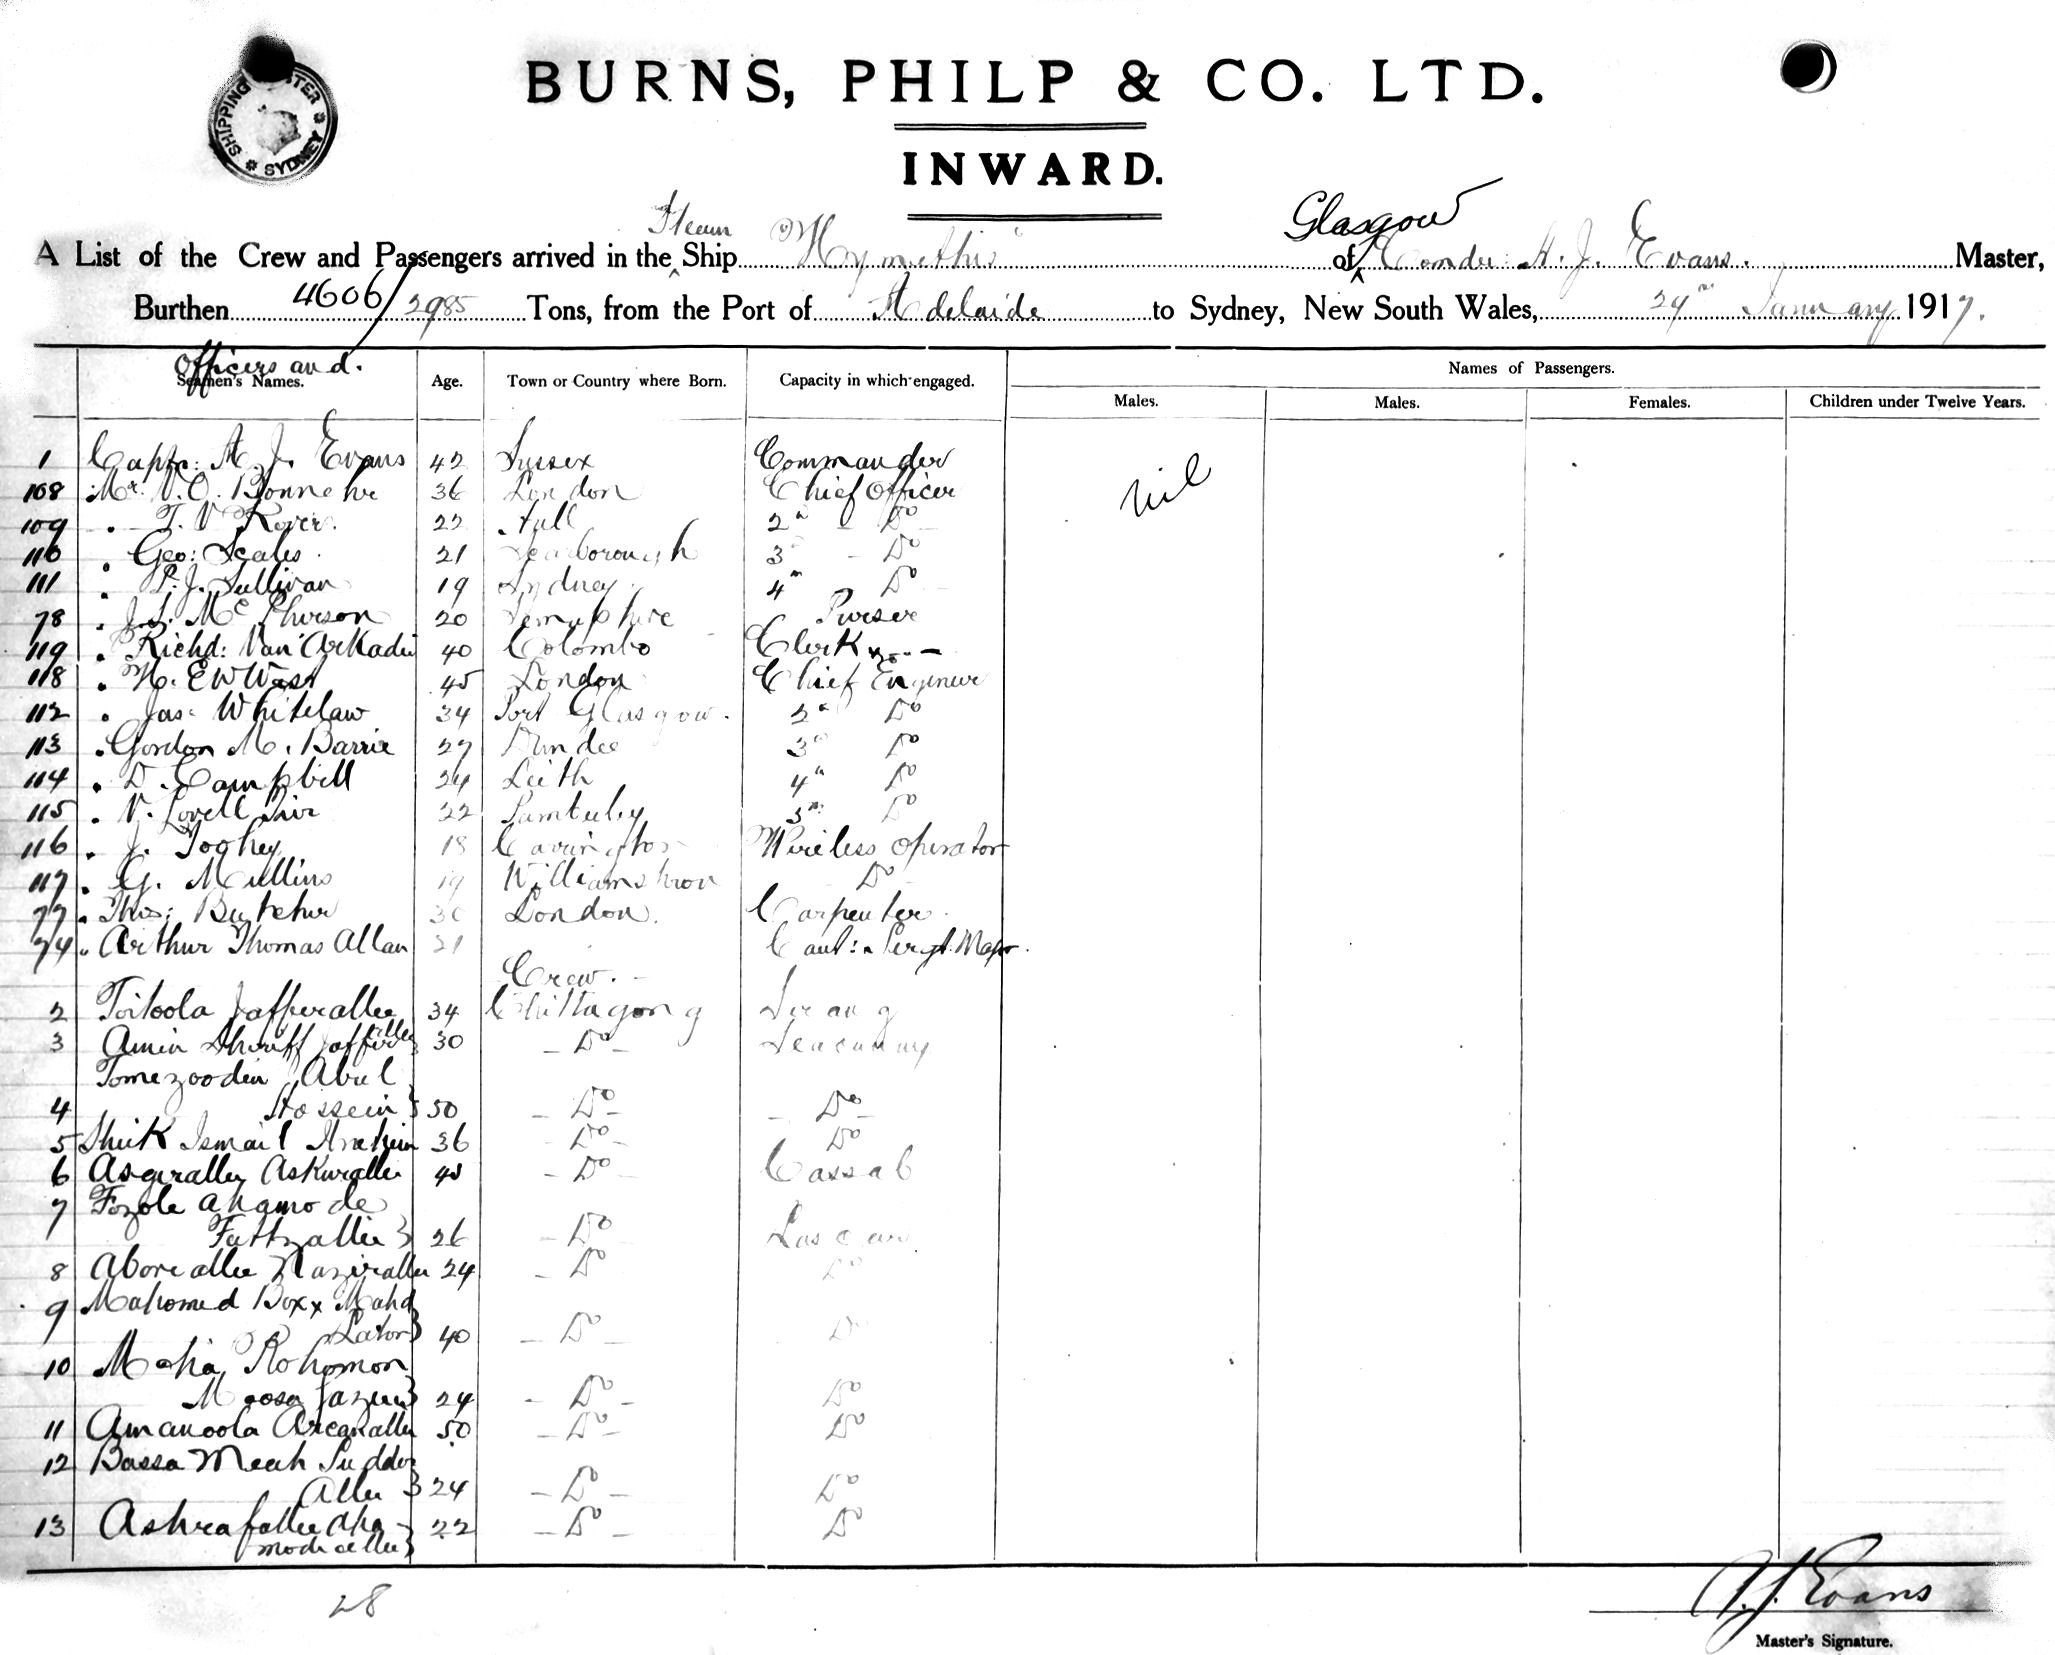 SHIPPING MASTER * SYDNEY *
BURNS, PHILP & CO. LTD.
INWARD.
Steam Glasgow
A List of the Crew and Passengers arrived in the Ship Hymettus of Comdr A. J. Evans. Master,
Burthen 4606/2985 Tons, from the Port of Adelaide to Sydney, New South Wales, 29 January 1917.
Officers and
Seamen's Names. Age. Town or Country where Born. Capacity in which engaged. Names of Passengers.
Males. Males. Females. Children under Twelve Years.
1 Capt: A. J. Evans 42 Sussex Commander
nil
108 Mr. V. O. 36 London Chief Officer
109 " T. V 22 Hull 2nd Do
110 " Geo: Scales 21 Scarborough 3rd - Do
111 " P. J. Sullivan 19 Sydney 4th Do
78 " J. S. McPherson 20 Purser
119 " Richd: Van Arkadie 40 Colombo Clerk
118 " H. E W West 45 London Chief Engineer
112 " Jas: Whitelaw 34 Port Glasgow. 2nd Do
113 " Gordon M. Barrie 27 Dundee 3rd Do
114 " D. Campbell 24 Leith 4th Do
115 " V. Lovell 22 5th Do
116 " J. Toohey 18 Wireless Operator
117 " G. Mullins 19 Williamstown Do
77 " Thos: Butcher 30 London. Carpenter
74 " Arthur Thomas Allan 21
Crew.
2 Jafferallee 34 Chittagong Serang
3 Amin Shariff Jafferallee 30 - Do - Seacunny
Tomezoodin Abul
4 Hossein } 50 - Do - - Do -
5 Sheik Ismail Ibrahim 36 - Do - Do
6 Asgerally Askurallee 45 - Do - Cassab
7 Fozole Ahamode
Fattyallee } 26 - Do - Lascar
8 Nazirallee 24 - Do Do
9 Mahomed Boxx Mahd
} 40 - Do - Do
10 Rohomon
Moosa } 24 - Do - Do
11 Amanoola 50 - Do - Do
12 Bassa Meah
Allee } 24 - Do - Do
13 Ashrafallee Aha-
modeallee } 22 - Do - Do
28
A. J. Evans
Master's Signature.